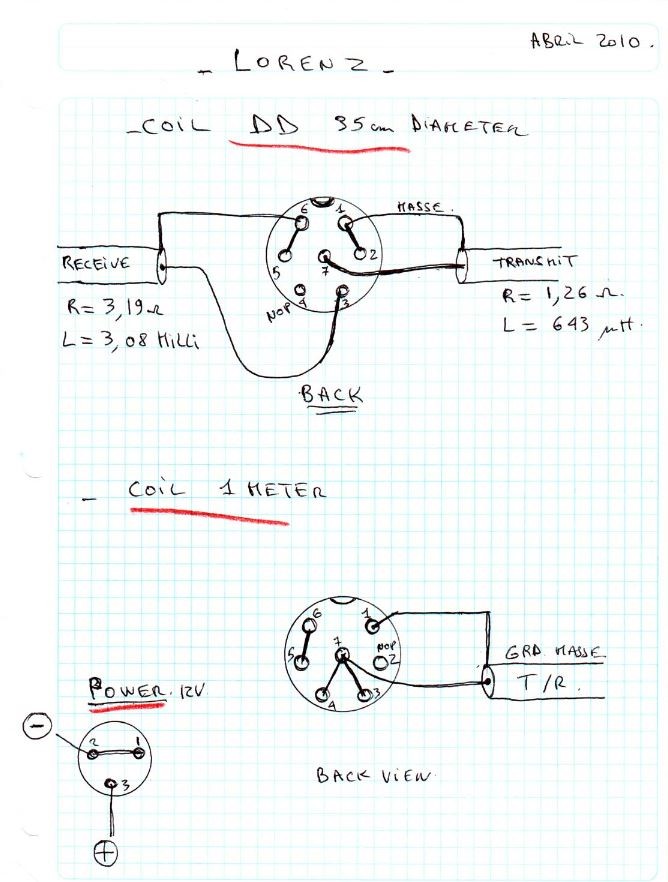 ABRIL 2010.
- LORENZ -
- COIL DD 35cm DIAMETER
6 1 MASSE.
RECEIVE
5 7 2
TRANSMIT
R = 3,19 Ω
NOP 4 3
R = 1,26 Ω.
L = 3,08 Milli
L = 643 µH.
BACK
- COIL 1 METER
6 1
7 NOP
5 2
GRD MASSE
T/R.
4 3
POWER. 12V.
-
2 1
3
BACK VIEW.
+